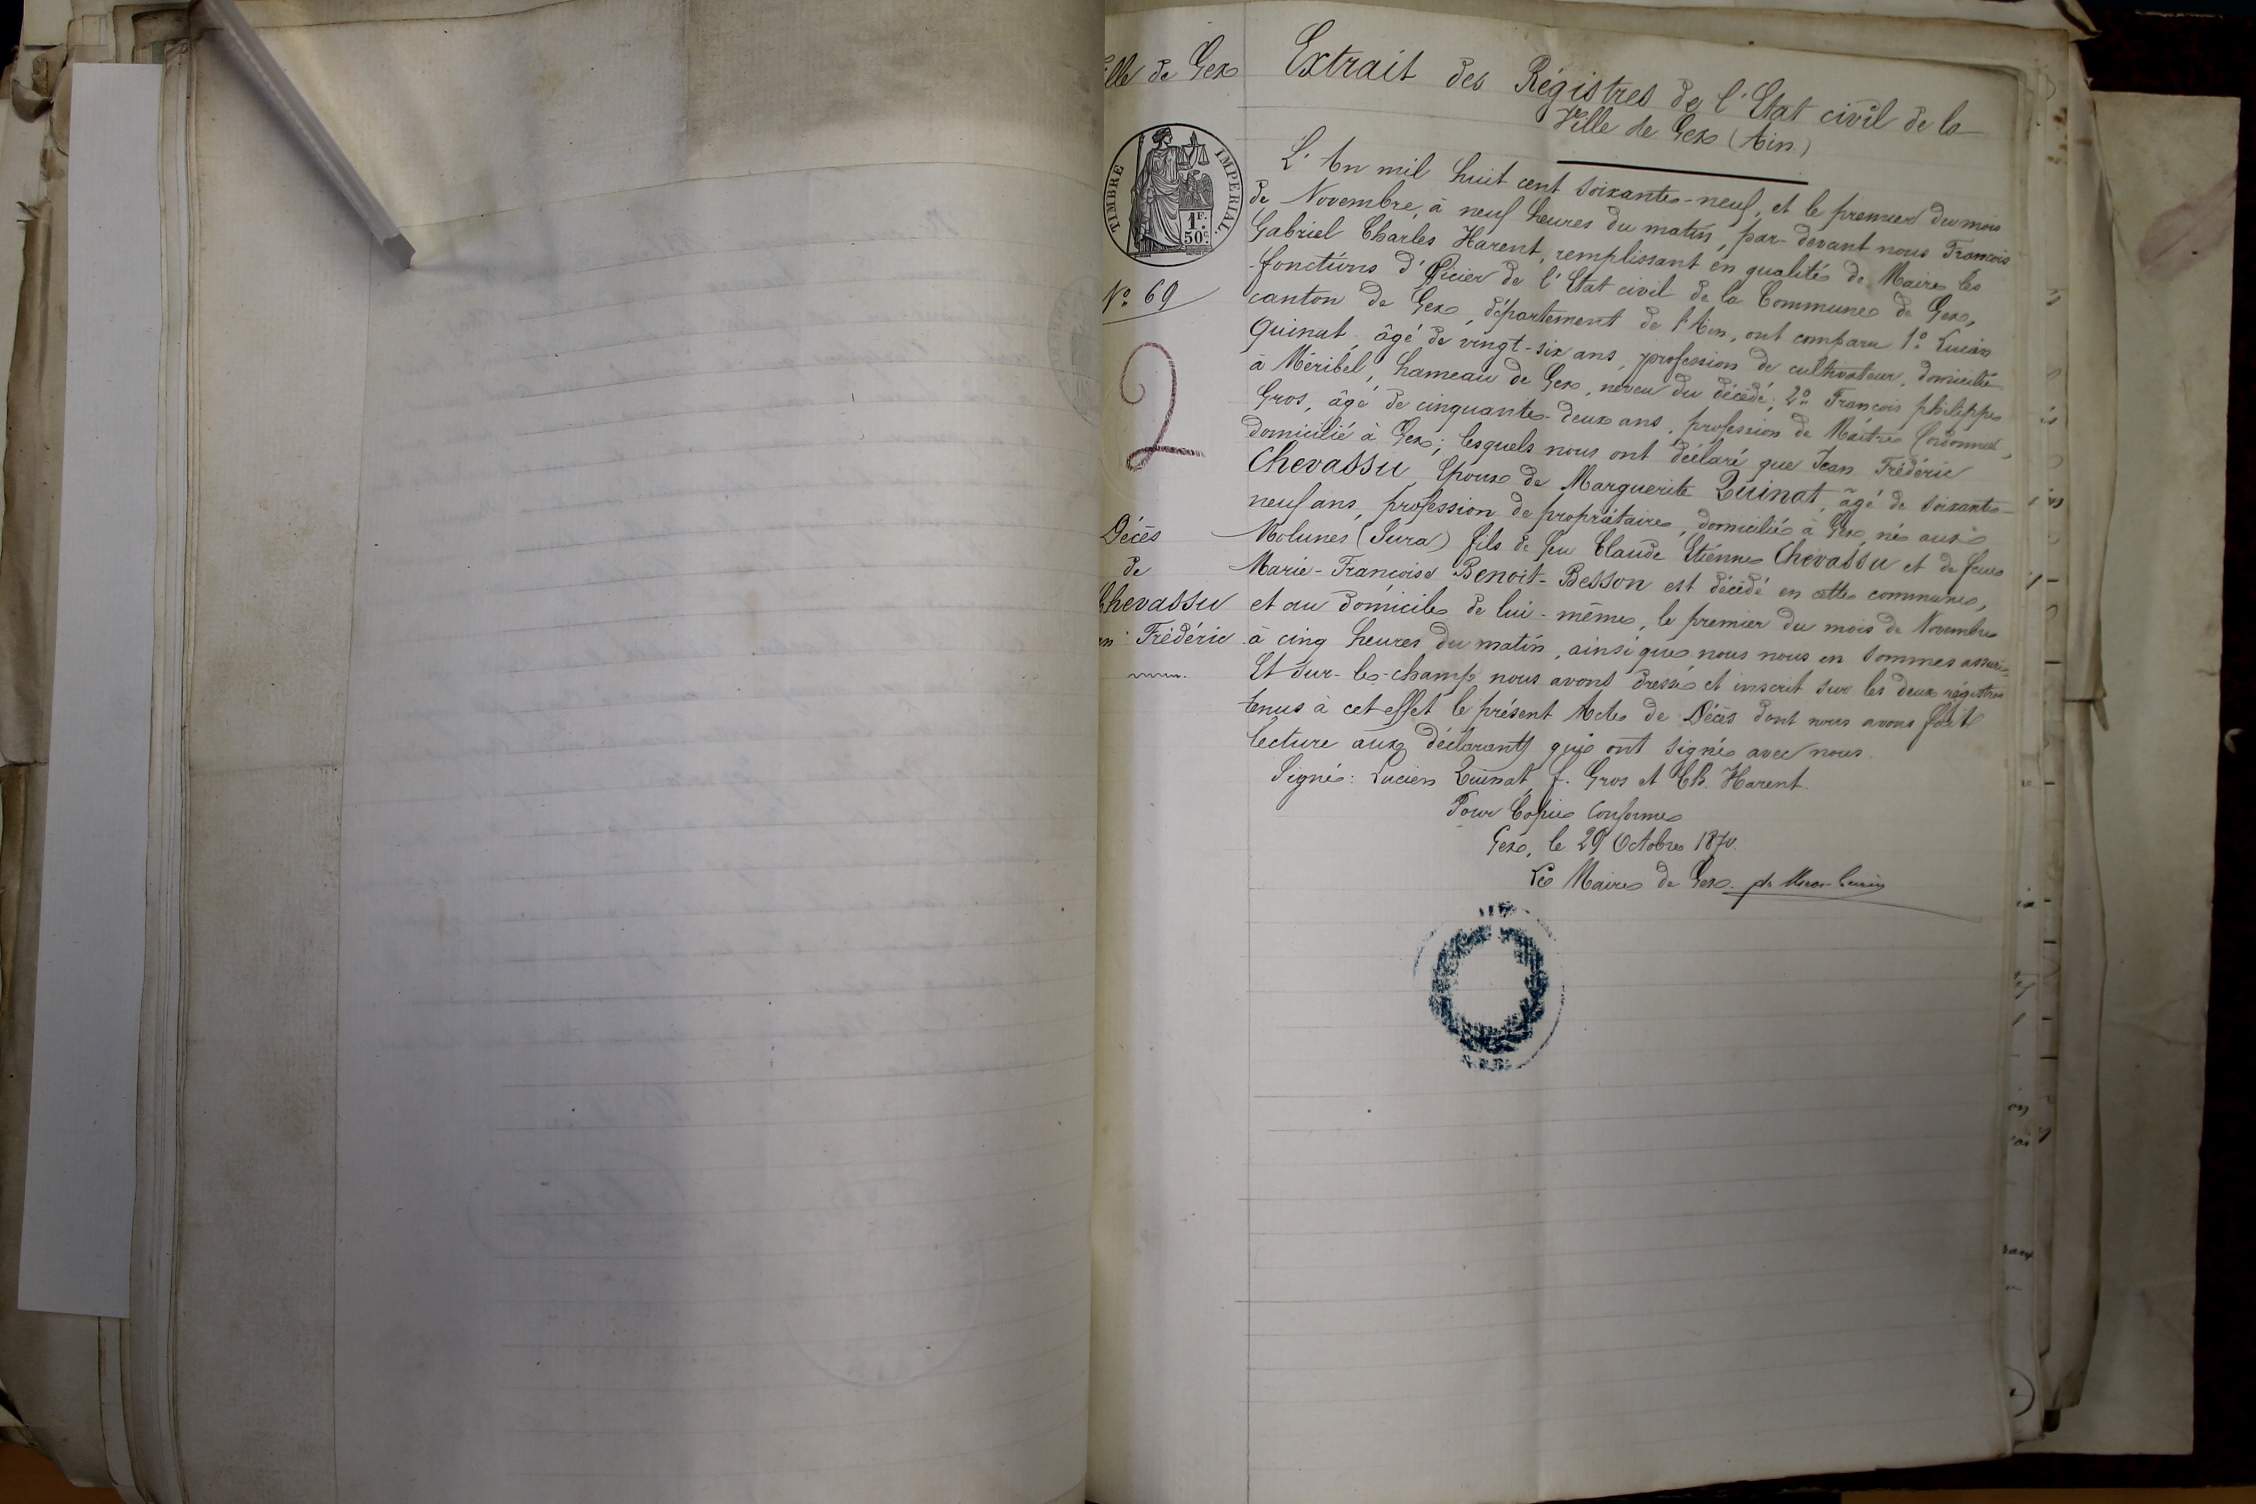 Ville de Gex
Extrait des Régistres de l'Etat civil de la
Ville de Gex (Ain)
TIMBRE IMPERIAL
1F.
50c.
L'An mil huit cent soixante-neuf, et le premier du mois
de Novembre, à neuf heures du matin, par-devant nous François
Gabriel Charles Harent, remplissant en qualité de Maire les
fonctions d'officier de l'Etat civil de la Commune de Gex,
canton de Gex, département de l'Ain, ont comparu 1º Lucien
Quinat, âgé de vingt-six ans, profession de cultivateur, domicilié
à Méribel, hameau de Gex, neveu du décédé; 2º François philippe
Gros, âgé de cinquante-deux ans, profession de Maître Cordonnier,
domicilié à Gex; lesquels nous ont déclaré que Jean Frédéric
Chevassu, Epoux de Marguerite Quinat, âgé de soixante-
neuf ans, profession de propriétaire, domicilié à Gex, né aux
Molunes (Jura) fils de feu Claude Etienne Chevassu et de feue
Marie-Françoise Benoit-Besson est décédé en cette commune,
et au domicile de lui-même, le premier du mois de Novembre
à cinq heures du matin, ainsi que nous nous en sommes assuré.
Et sur-le-champ nous avons dressé et inscrit sur les deux régistres
tenus à cet effet le présent Acte de Décès dont nous avons fait
lecture aux déclarants qui ont signé avec nous.
Signé: Lucien Quinat, f. Gros et Ch. Harent.
Pour Copie Conforme
Gex, le 29 Octobre 1870.
Le Maire de Gex.
Nº 69
2
Décès
de
Chevassu
Frédéric